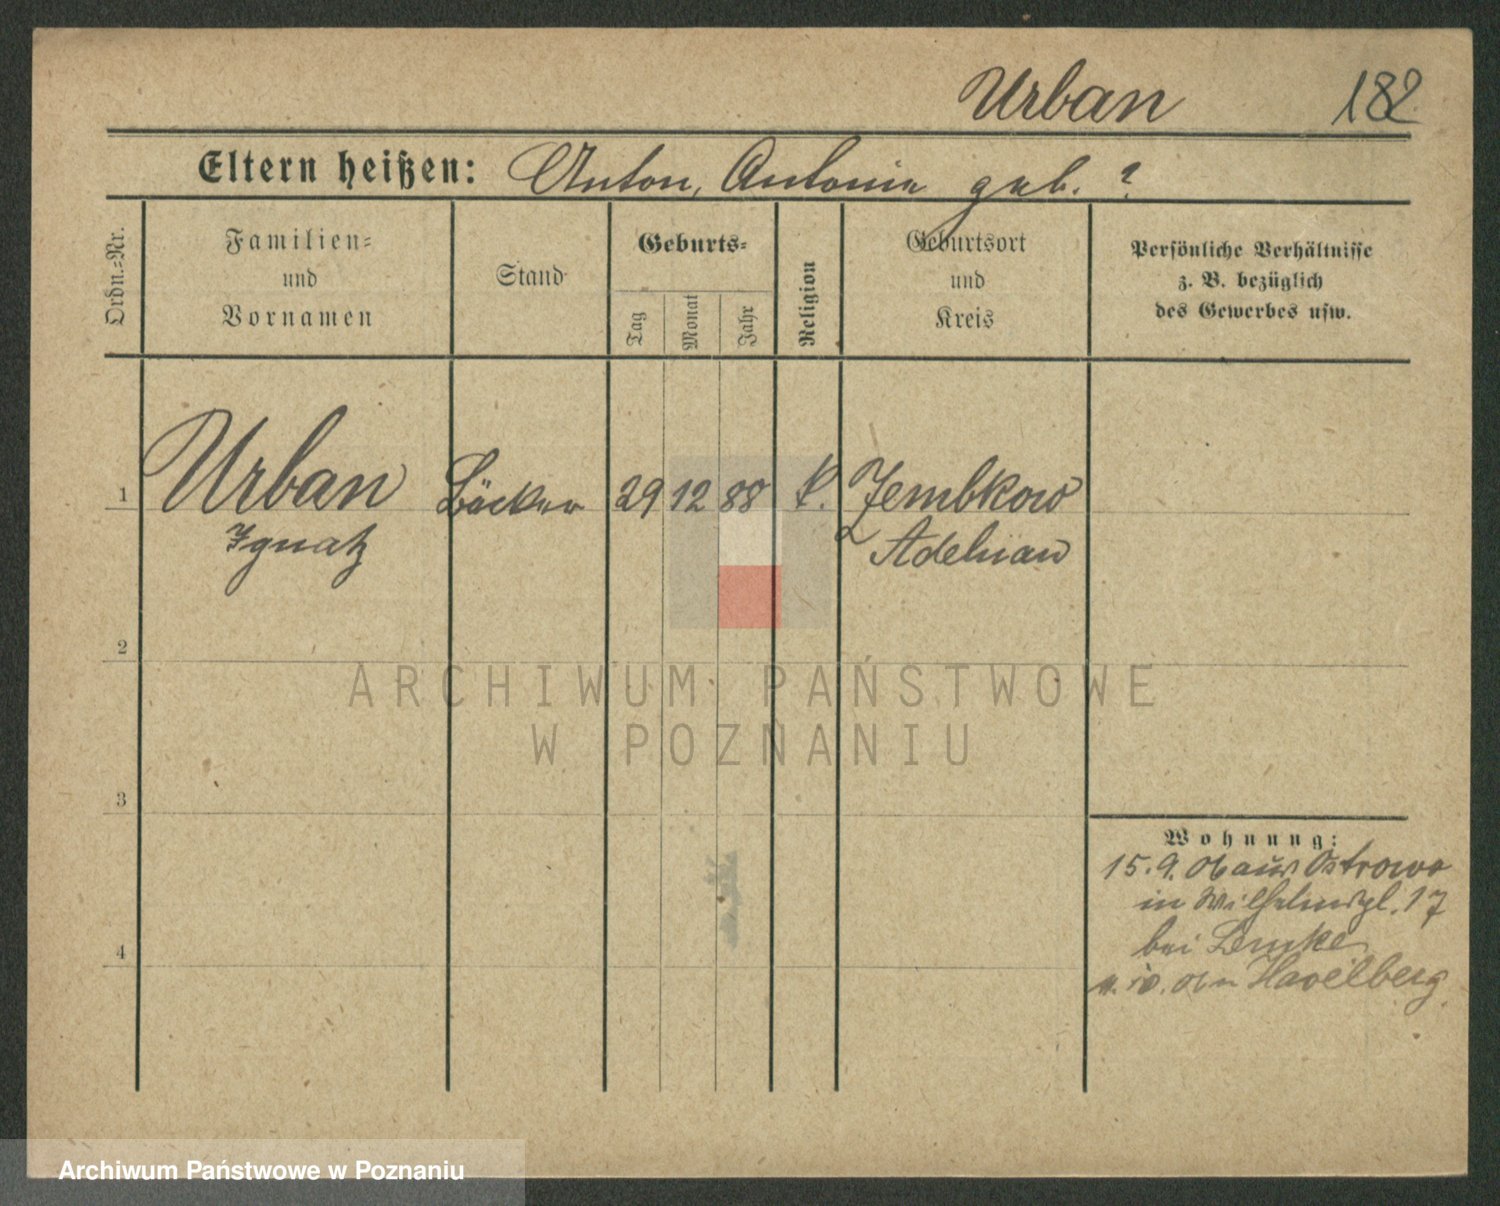 Urban 182
Eltern heißen: Anton, Antonie geb. ?
Ordn.-Nr.
Familien- und Vornamen
Stand
Geburts-
Tag
Monat
Jahr
Religion
Geburtsort und Kreis
Persönliche Verhältnisse
z. B. bezüglich
des Gewerbes usw.
1 Urban Bäcker 29 12 88 k. Zembkow
Ignatz Adelnau
2
3
4
Wohnung:
15.9.06 aus Ostrowo
in Wilhelmspl. 17
bei Lemke
Havelberg
ARCHIWUM PAŃSTWOWE
W POZNANIU
Archiwum Państwowe w Poznaniu